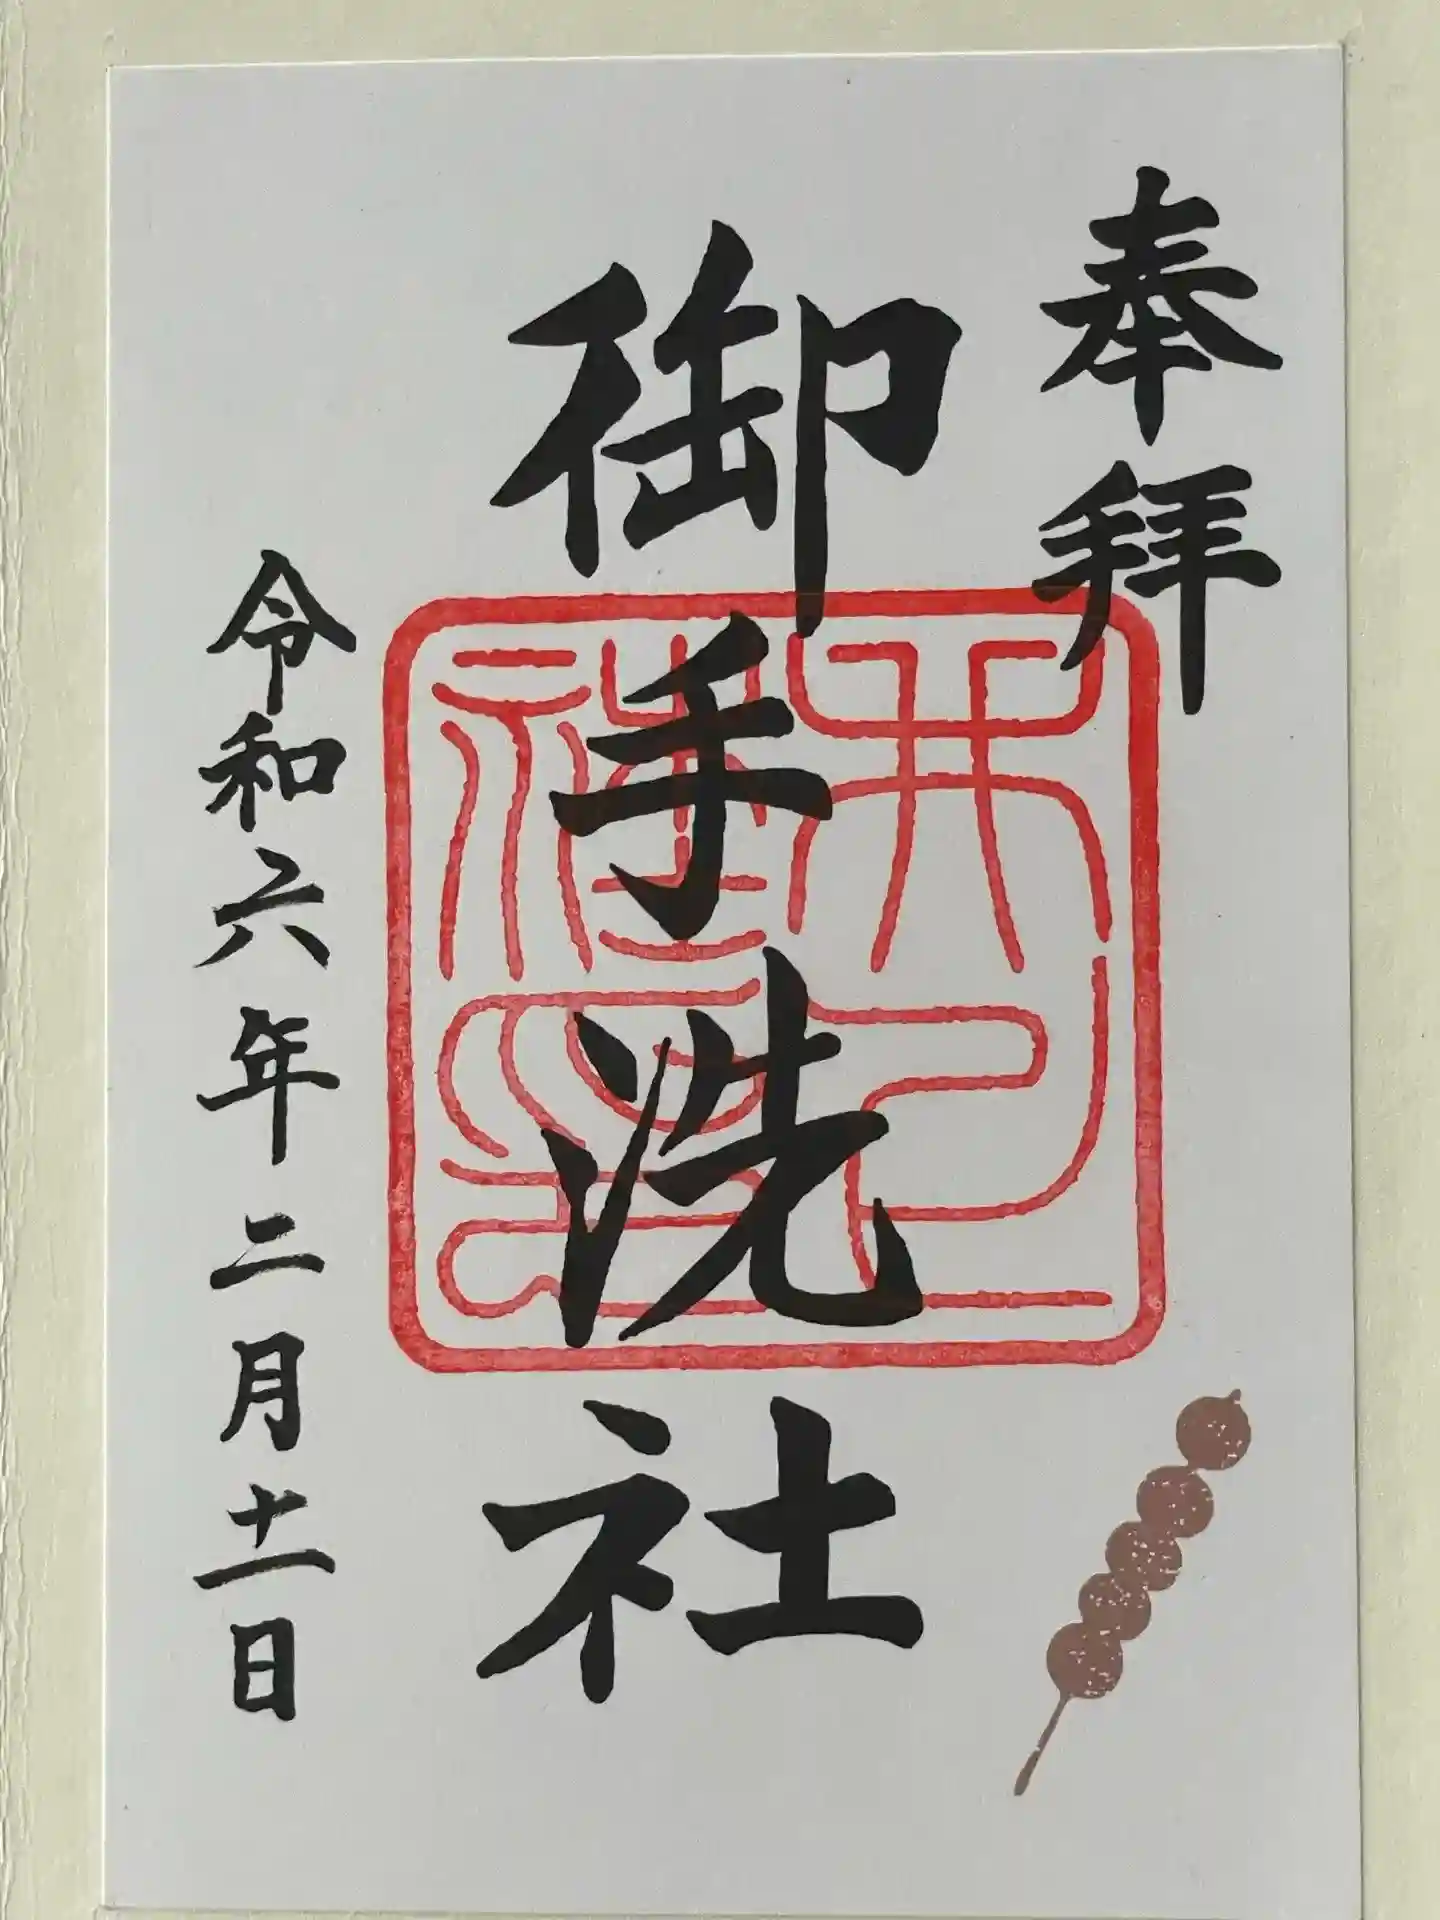 奉拝
御手洗社
令和六年二月十一日